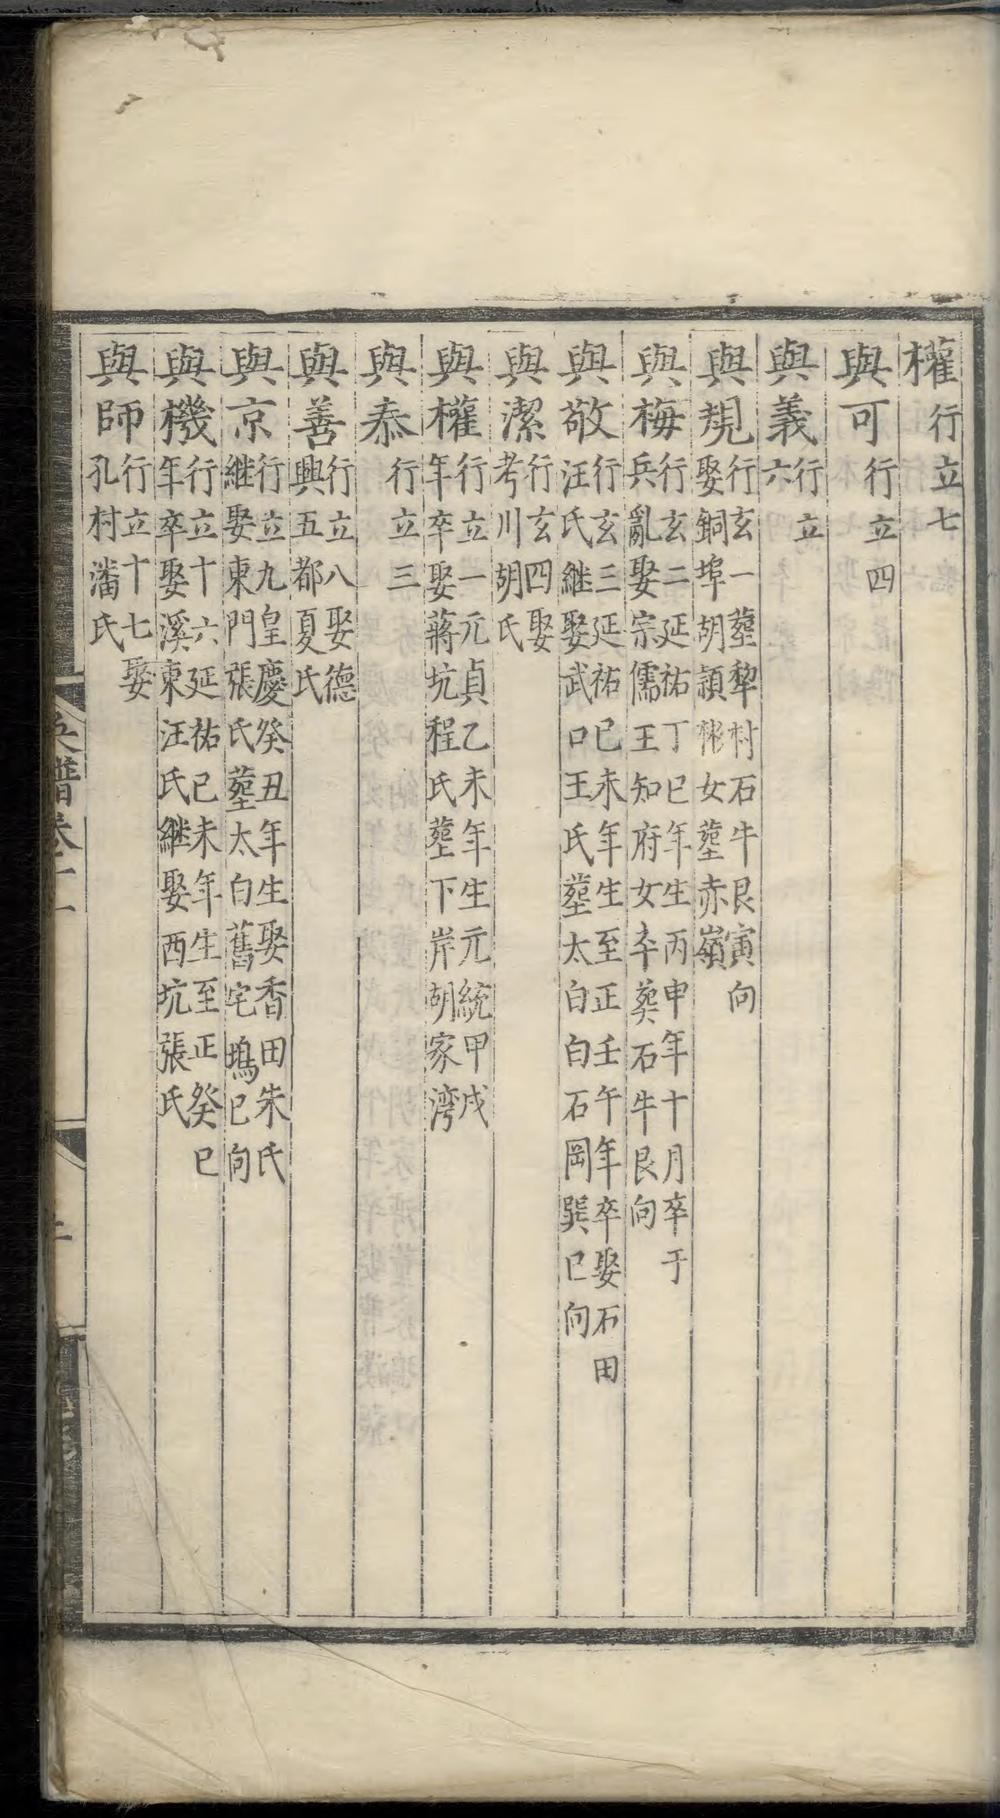 權行立七
與可行立四
與義行立
六
與規行玄一塟犁村石牛艮寅向
娶銅埠胡頴彬女塟赤嶺
與梅行玄二延祐丁巳年生丙申年十月卒于
兵亂娶宗儒王知府女卒葬石牛艮向
與敬行玄三延祐己未年生至正壬午年卒娶石田
汪氏繼娶武口王氏塟太白白石岡巽巳向
與潔行玄四娶
考川胡氏
與權行立一元貞乙未年生元統甲戌
年卒娶蔣坑程氏塟下岸胡家湾
與泰行立三
與善行立八娶德
興五都夏氏
與京行立九皇慶癸丑年生娶香田朱氏
継娶東門張氏塟太白舊宅塢巳向
與機行立十六延祐己未年生至正癸巳
年卒娶溪東汪氏継娶西坑張氏
與師行立十七娶
孔村潘氏